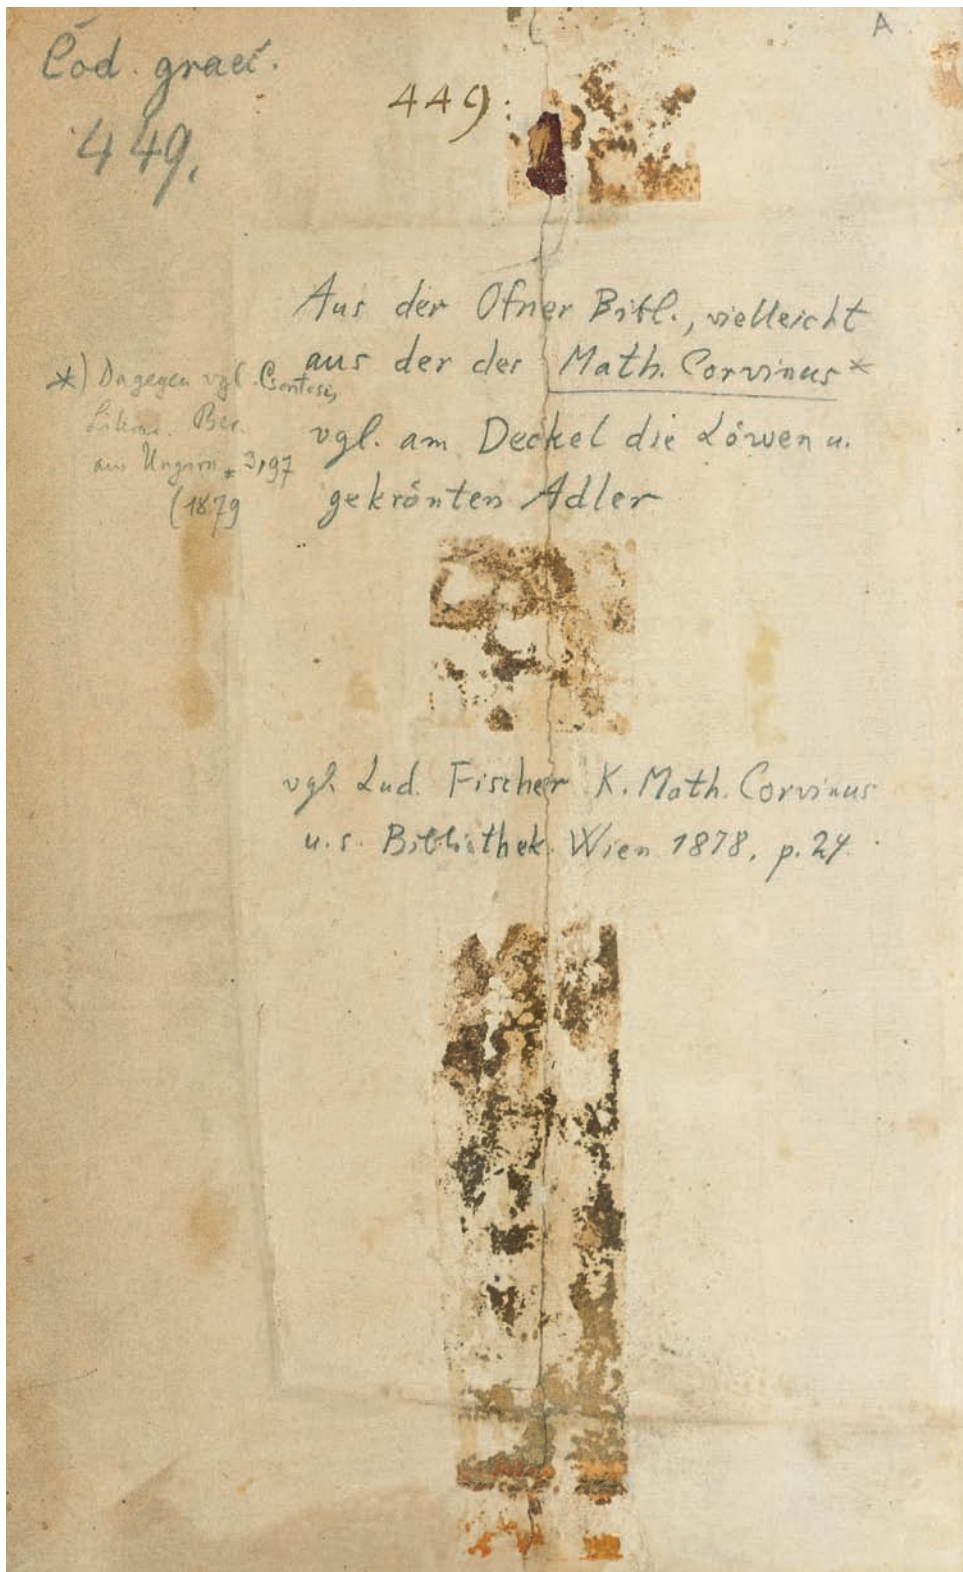 A
Cod. graec.
449.
449.
Aus der Ofner Bibl., vielleicht
aus der des Math. Corvinus *
vgl. am Deckel die Löwen u.
gekrönten Adler
*) Dagegen vgl. Csontosi,
Ber.
aus Ungarn 3,97
(1879
vgl. Lud. Fischer K. Math. Corvinus
u. s. Bibliothek. Wien 1878, p. 24.